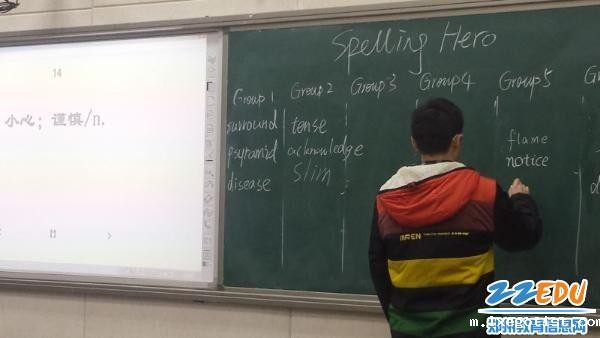 14
小心；谨慎/n.
Spelling Hero
Group 1 Group 2 Group 3 Group 4 Group 5
surround tense flame
psyramid acknowledge notice
disease Slim
ZZEDU
郑州教育信息网